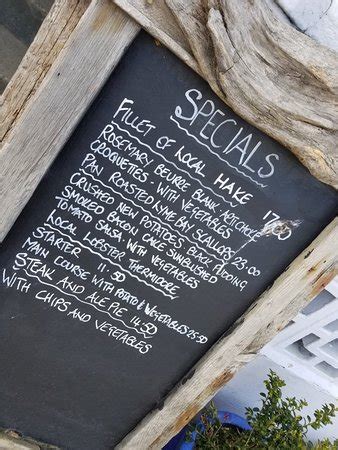 SPECIALS
FILLET OF LOCAL HAKE
ROSEMARY BEURRE BLANK ARTICHOKE
CROQUETTES - WITH VEGETABLES 17.50
PAN ROASTED LYME BAY SCALLOPS 23.00
CRUSHED NEW POTATOES BLACK PUDDING
SMOKED BACON CAKE SUNBLUSHED
TOMATO SALSA - WITH VEGETABLES
LOCAL LOBSTER THERMIDORE
STARTER 11.50
MAIN COURSE WITH POTATO & VEGETABLES 25.50
STEAK AND ALE PIE 14.50
WITH CHIPS AND VEGETABLES